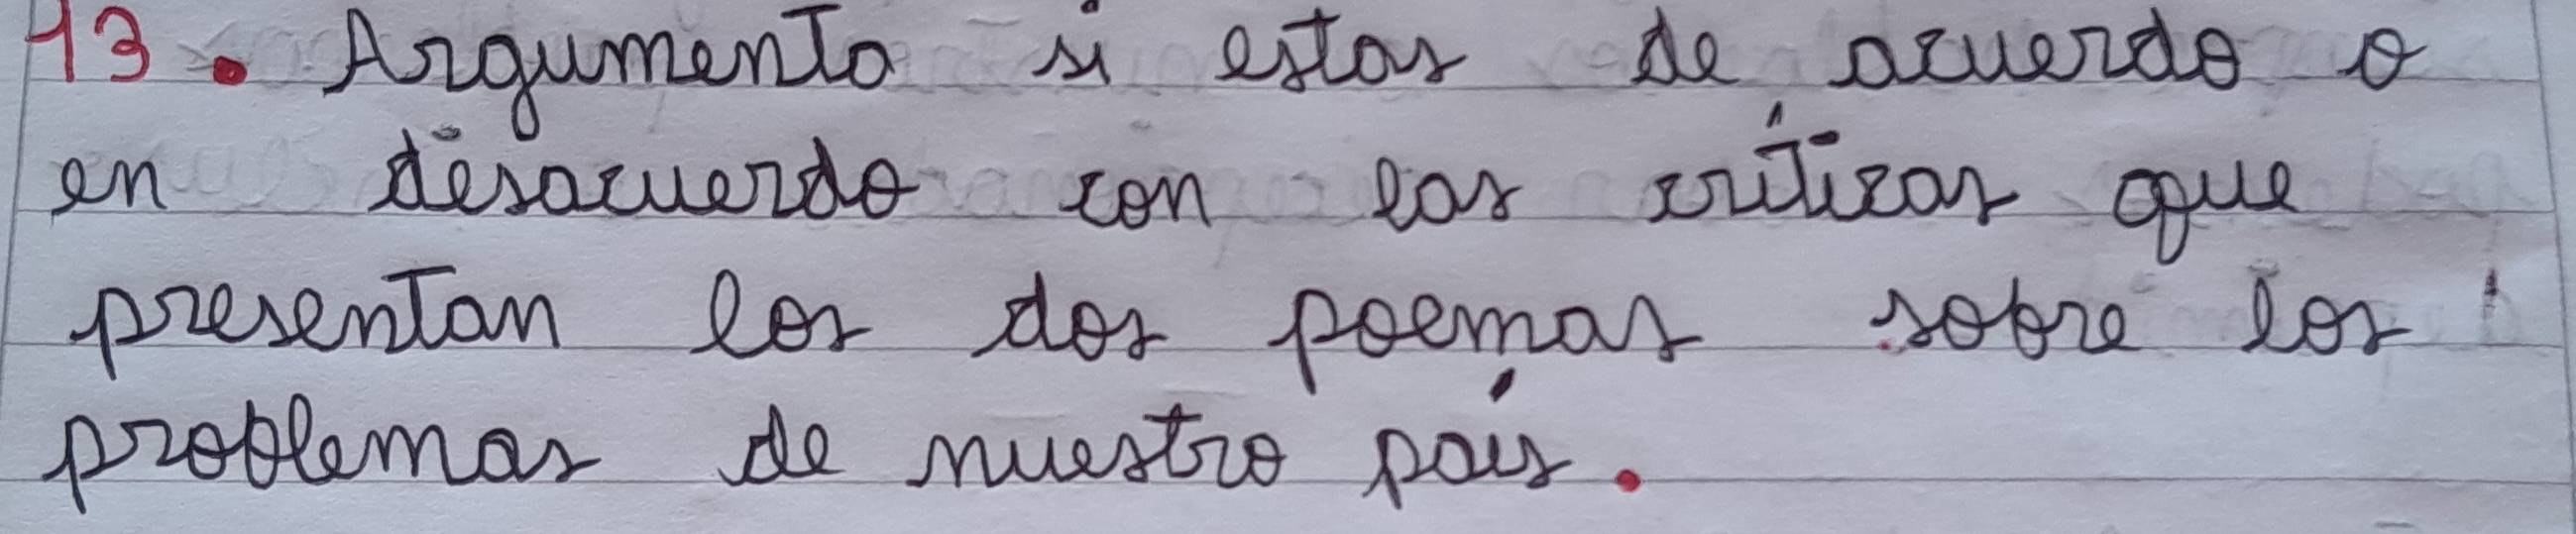 13. Argumenta si estas de acuerdo o
en desacuerdo con las críticas que
presentan los dos poemas sobre los
problemas de nuestro país.